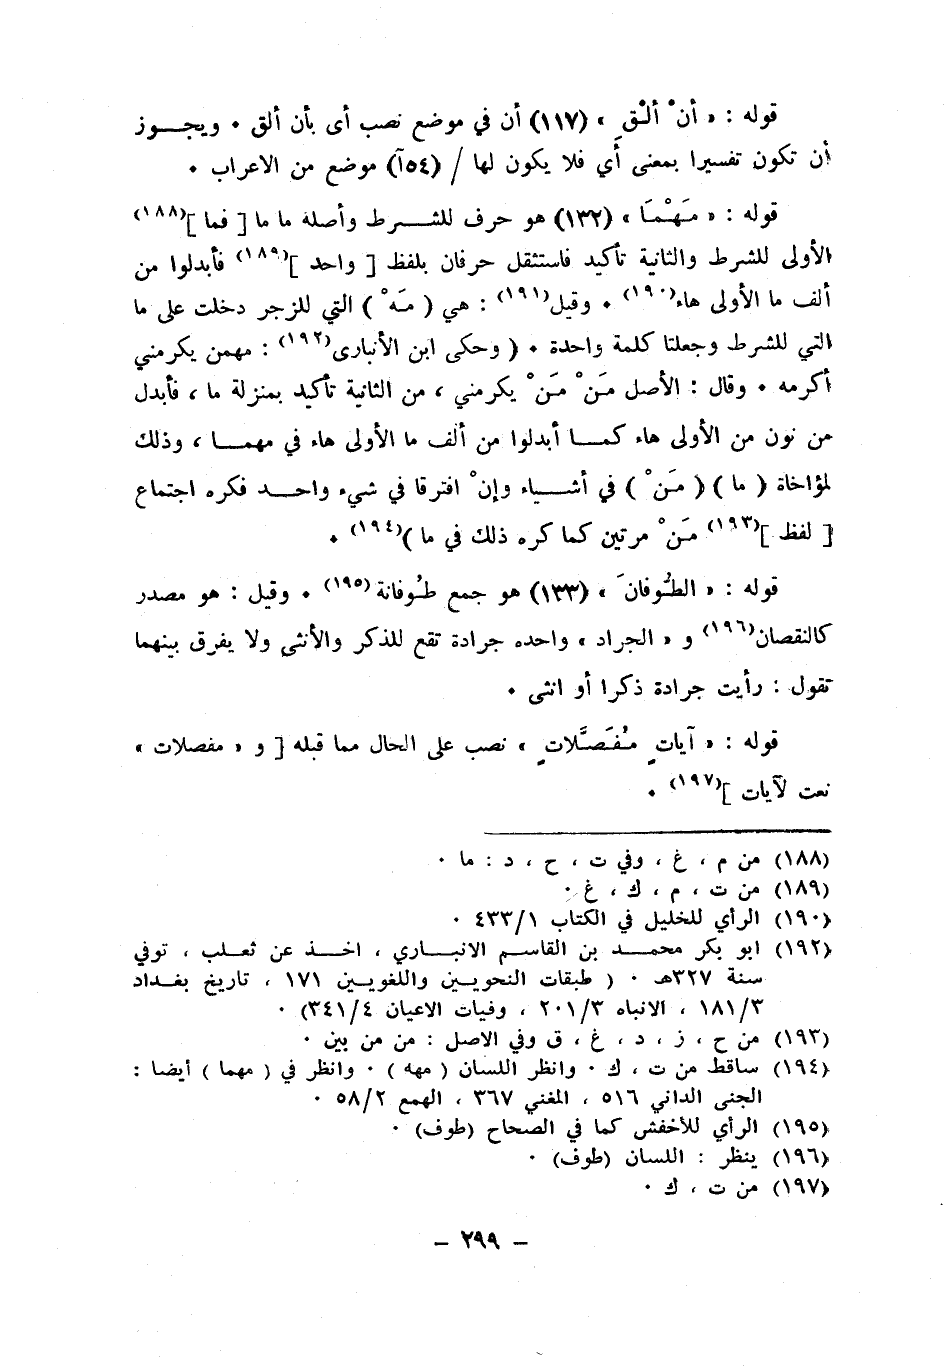 قوله : « أنْ ألْقِ » (١١٧) أن في موضع نصب أى بأن ألق ٠ ويجـــوز
أن تكون تفسيرا بمعنى أَي فلا يكون لها / (٥٤آ) موضع من الاعراب ٠
قوله : « مَهْمَا » (١٣٢) هو حرف للشـــرط وأصله ما ما [ فما ](١٨٨)
الأولى للشرط والثانية تأكيد فاستثقل حرفان بلفظ [ واحد ](١٨٩) فأبدلوا من
ألف ما الأولى هاء(١٩٠) ٠ وقيل(١٩١) : هي ( مَهْ ) التي للزجر دخلت على ما
التي للشرط وجعلتا كلمة واحدة ٠ ( وحكى ابن الأنبارى(١٩٢) : مهمن يكرمني
أكرمه ٠ وقال : الأصل مَنْ مَنْ يكرمني ، من الثانية تأكيد بمنزلة ما ، فأبدل
من نون من الأولى هاء كمـــا أبدلوا من ألف ما الأولى هاء في مهمـــا ، وذلك
لمؤاخاة ( ما ) ( مَنْ ) في أشـــياء وإنْ افترقا في شيء واحـــد فكره اجتماع
[ لفظ ](١٩٣) مَنْ مرتين كما كره ذلك في ما )(١٩٤) ٠
قوله : « الطُّوفانَ » (١٣٣) هو جمع طُوفانة(١٩٥) ٠ وقيل : هو مصدر
كالنقصان(١٩٦) و « الجراد » واحده جرادة تقع للذكر والأنثى ولا يفرق بينهما
تقول : رأيت جرادة ذكرا أو انثى ٠
قوله : « آياتٍ مُفَصَّلاتٍ » نصب على الحال مما قبله [ و « مفصلات »
نعت لآيات ](١٩٧) ٠
(١٨٨) من م ، غ ، وفي ت ، ح ، د : ما ٠
(١٨٩) من ت ، م ، ك ، غ ٠
(١٩٠) الرأي للخليل في الكتاب ٤٣٣/١ ٠
(١٩٢) ابو بكر محمـــد بن القاســم الانبـــاري ، اخـــذ عن ثعـلب ، توفي
سنة ٣٢٧هـ ٠ ( طبقات النحويـين واللغويـين ١٧١ ، تاريخ بغـداد
١٨١/٣ ، الانباه ٢٠١/٣ ، وفيات الاعيان ٣٤١/٤) ٠
(١٩٣) من ح ، ز ، د ، غ ، ق وفي الاصل : من من بين ٠
(١٩٤) ساقط من ت ، ك ٠ وانظر اللسان ( مهه ) ٠ وانظر في ( مهما ) أيضا :
الجنى الداني ٥١٦ ، المغني ٣٦٧ ، الهمع ٥٨/٢ ٠
(١٩٥) الرأي للأخفش كما في الصحاح (طوف) ٠
(١٩٦) ينظر : اللسان (طوف) ٠
(١٩٧) من ت ، ك ٠
– ٢٩٩ –